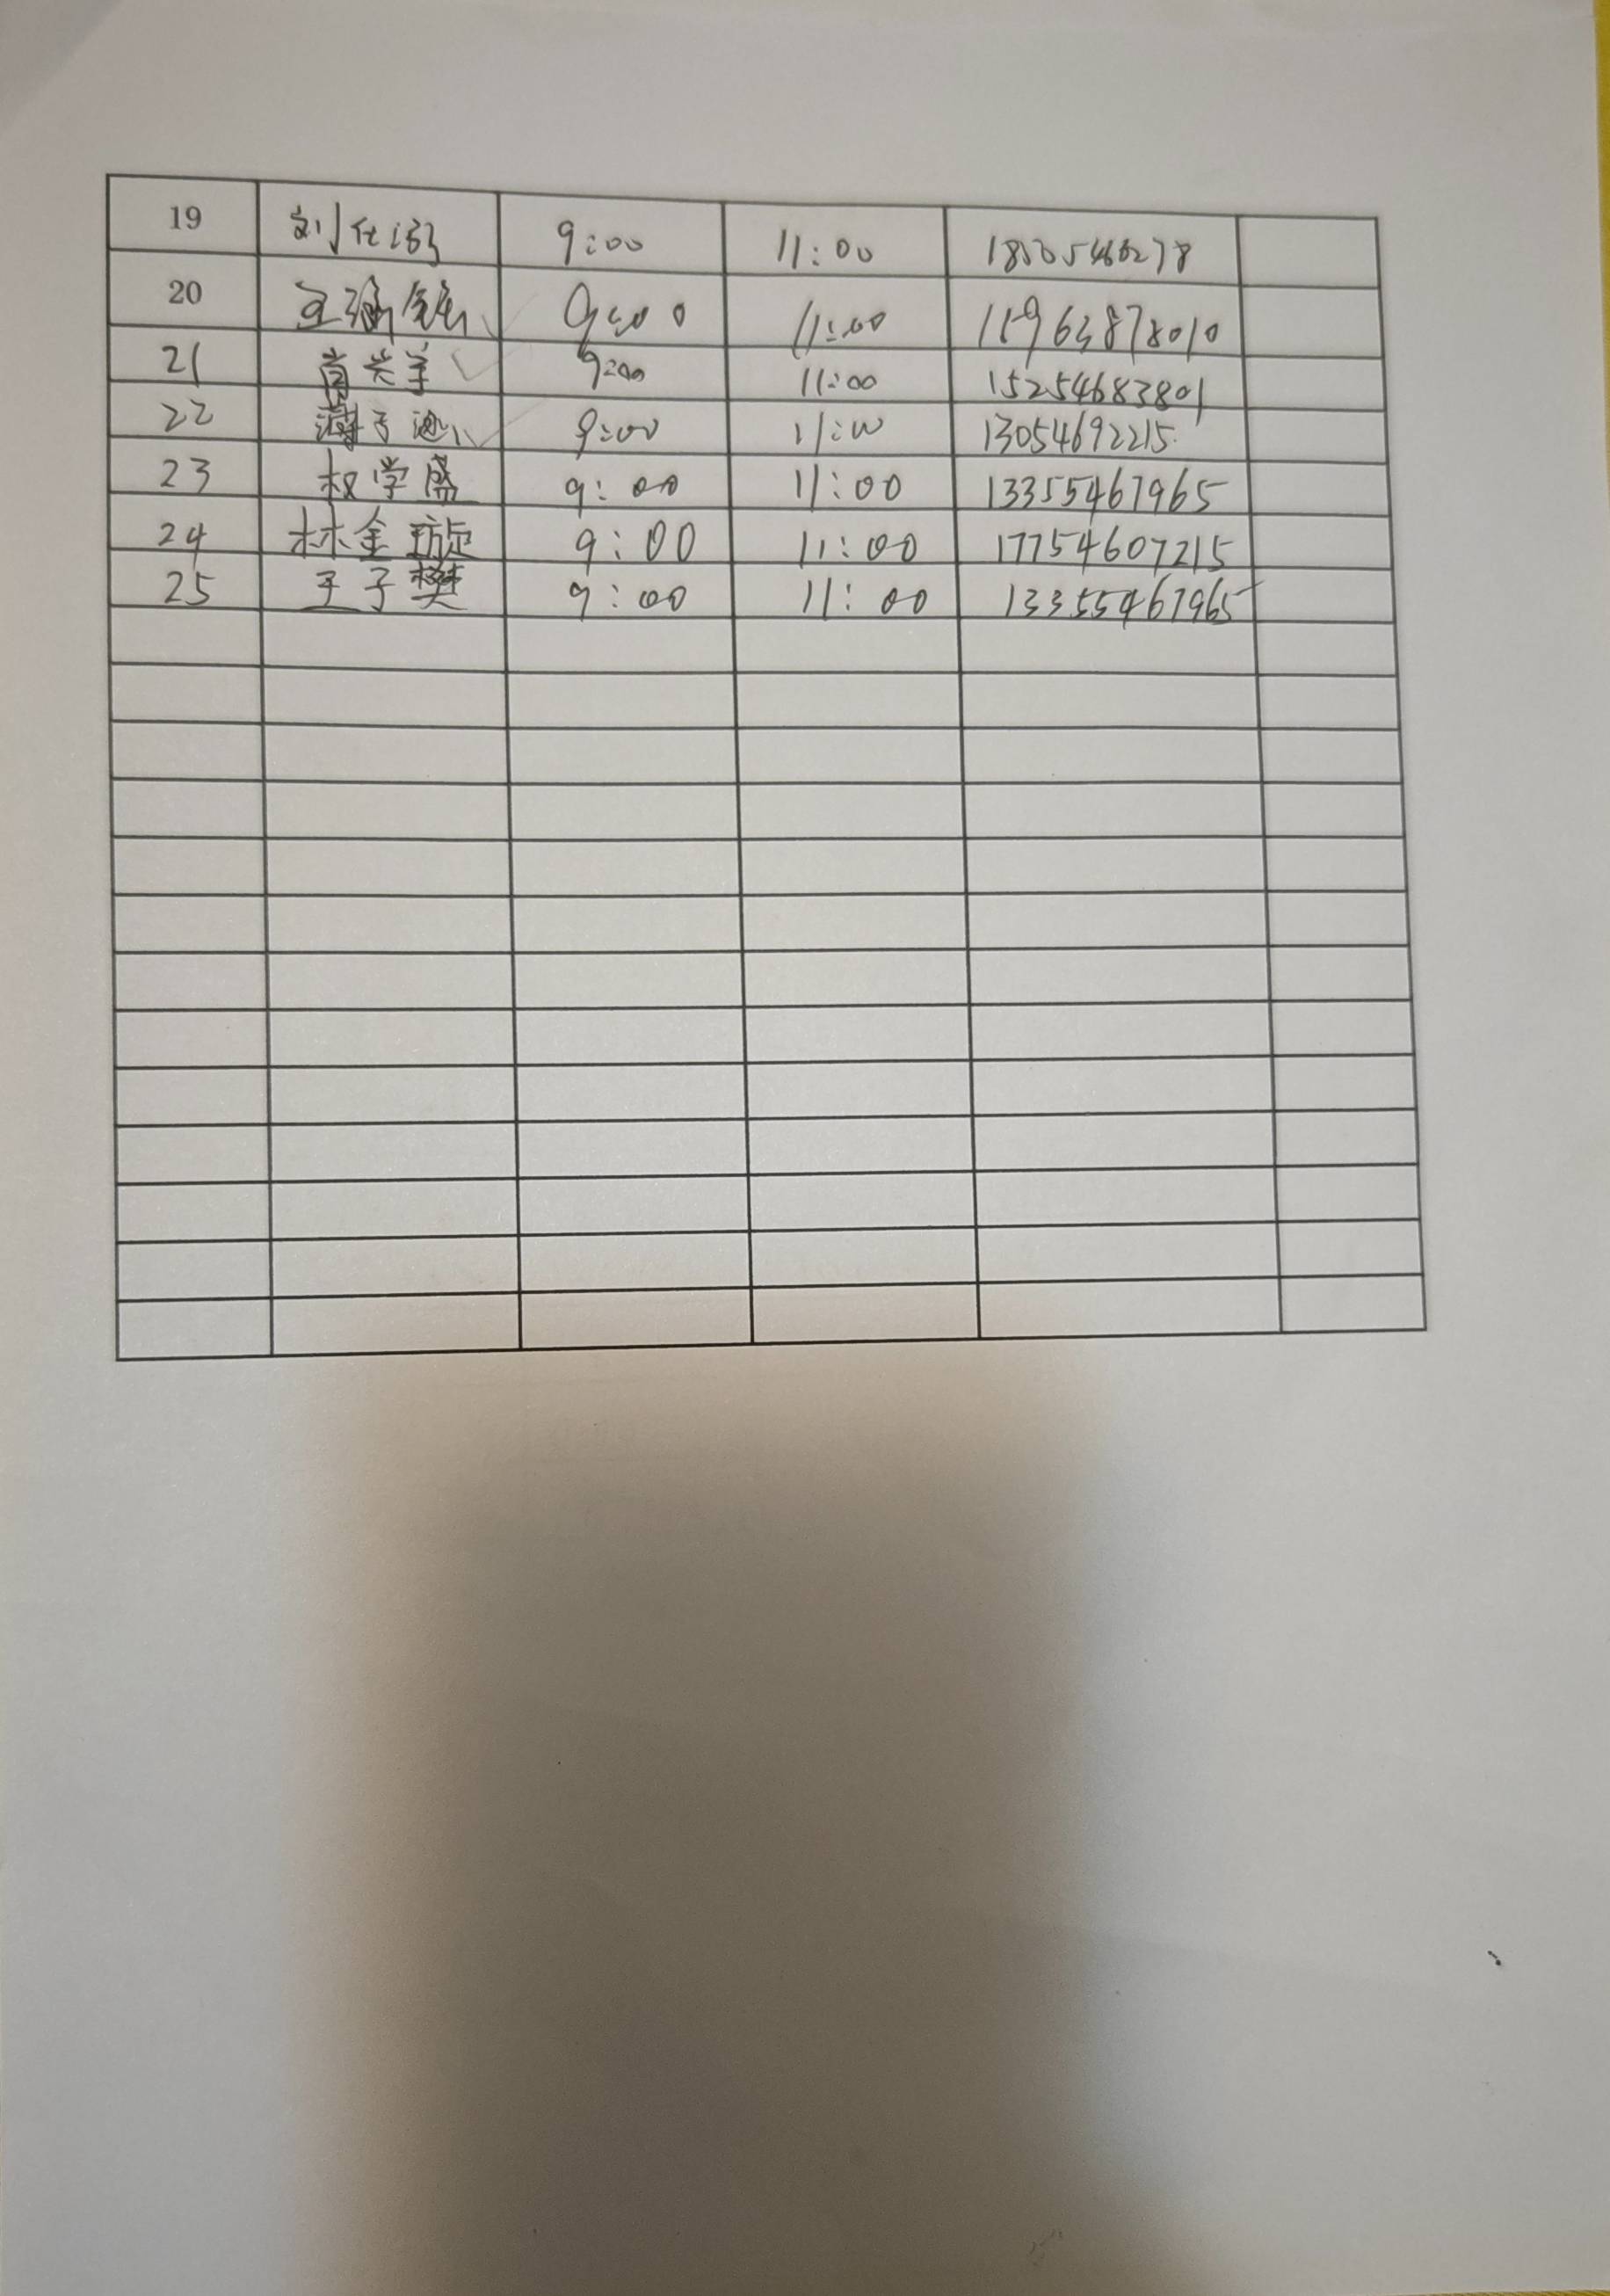 19 刘仕 9:00 11:00
20 王涵 9:00 11:00
21 肖兴 9:00 11:00 15254683801
22 薄子 9:00 11:00 13054692215
23 权学盛 9:00 11:00 13355467965
24 林金璇 9:00 11:00 17754607215
25 王子樊 9:00 11:00 13355467965